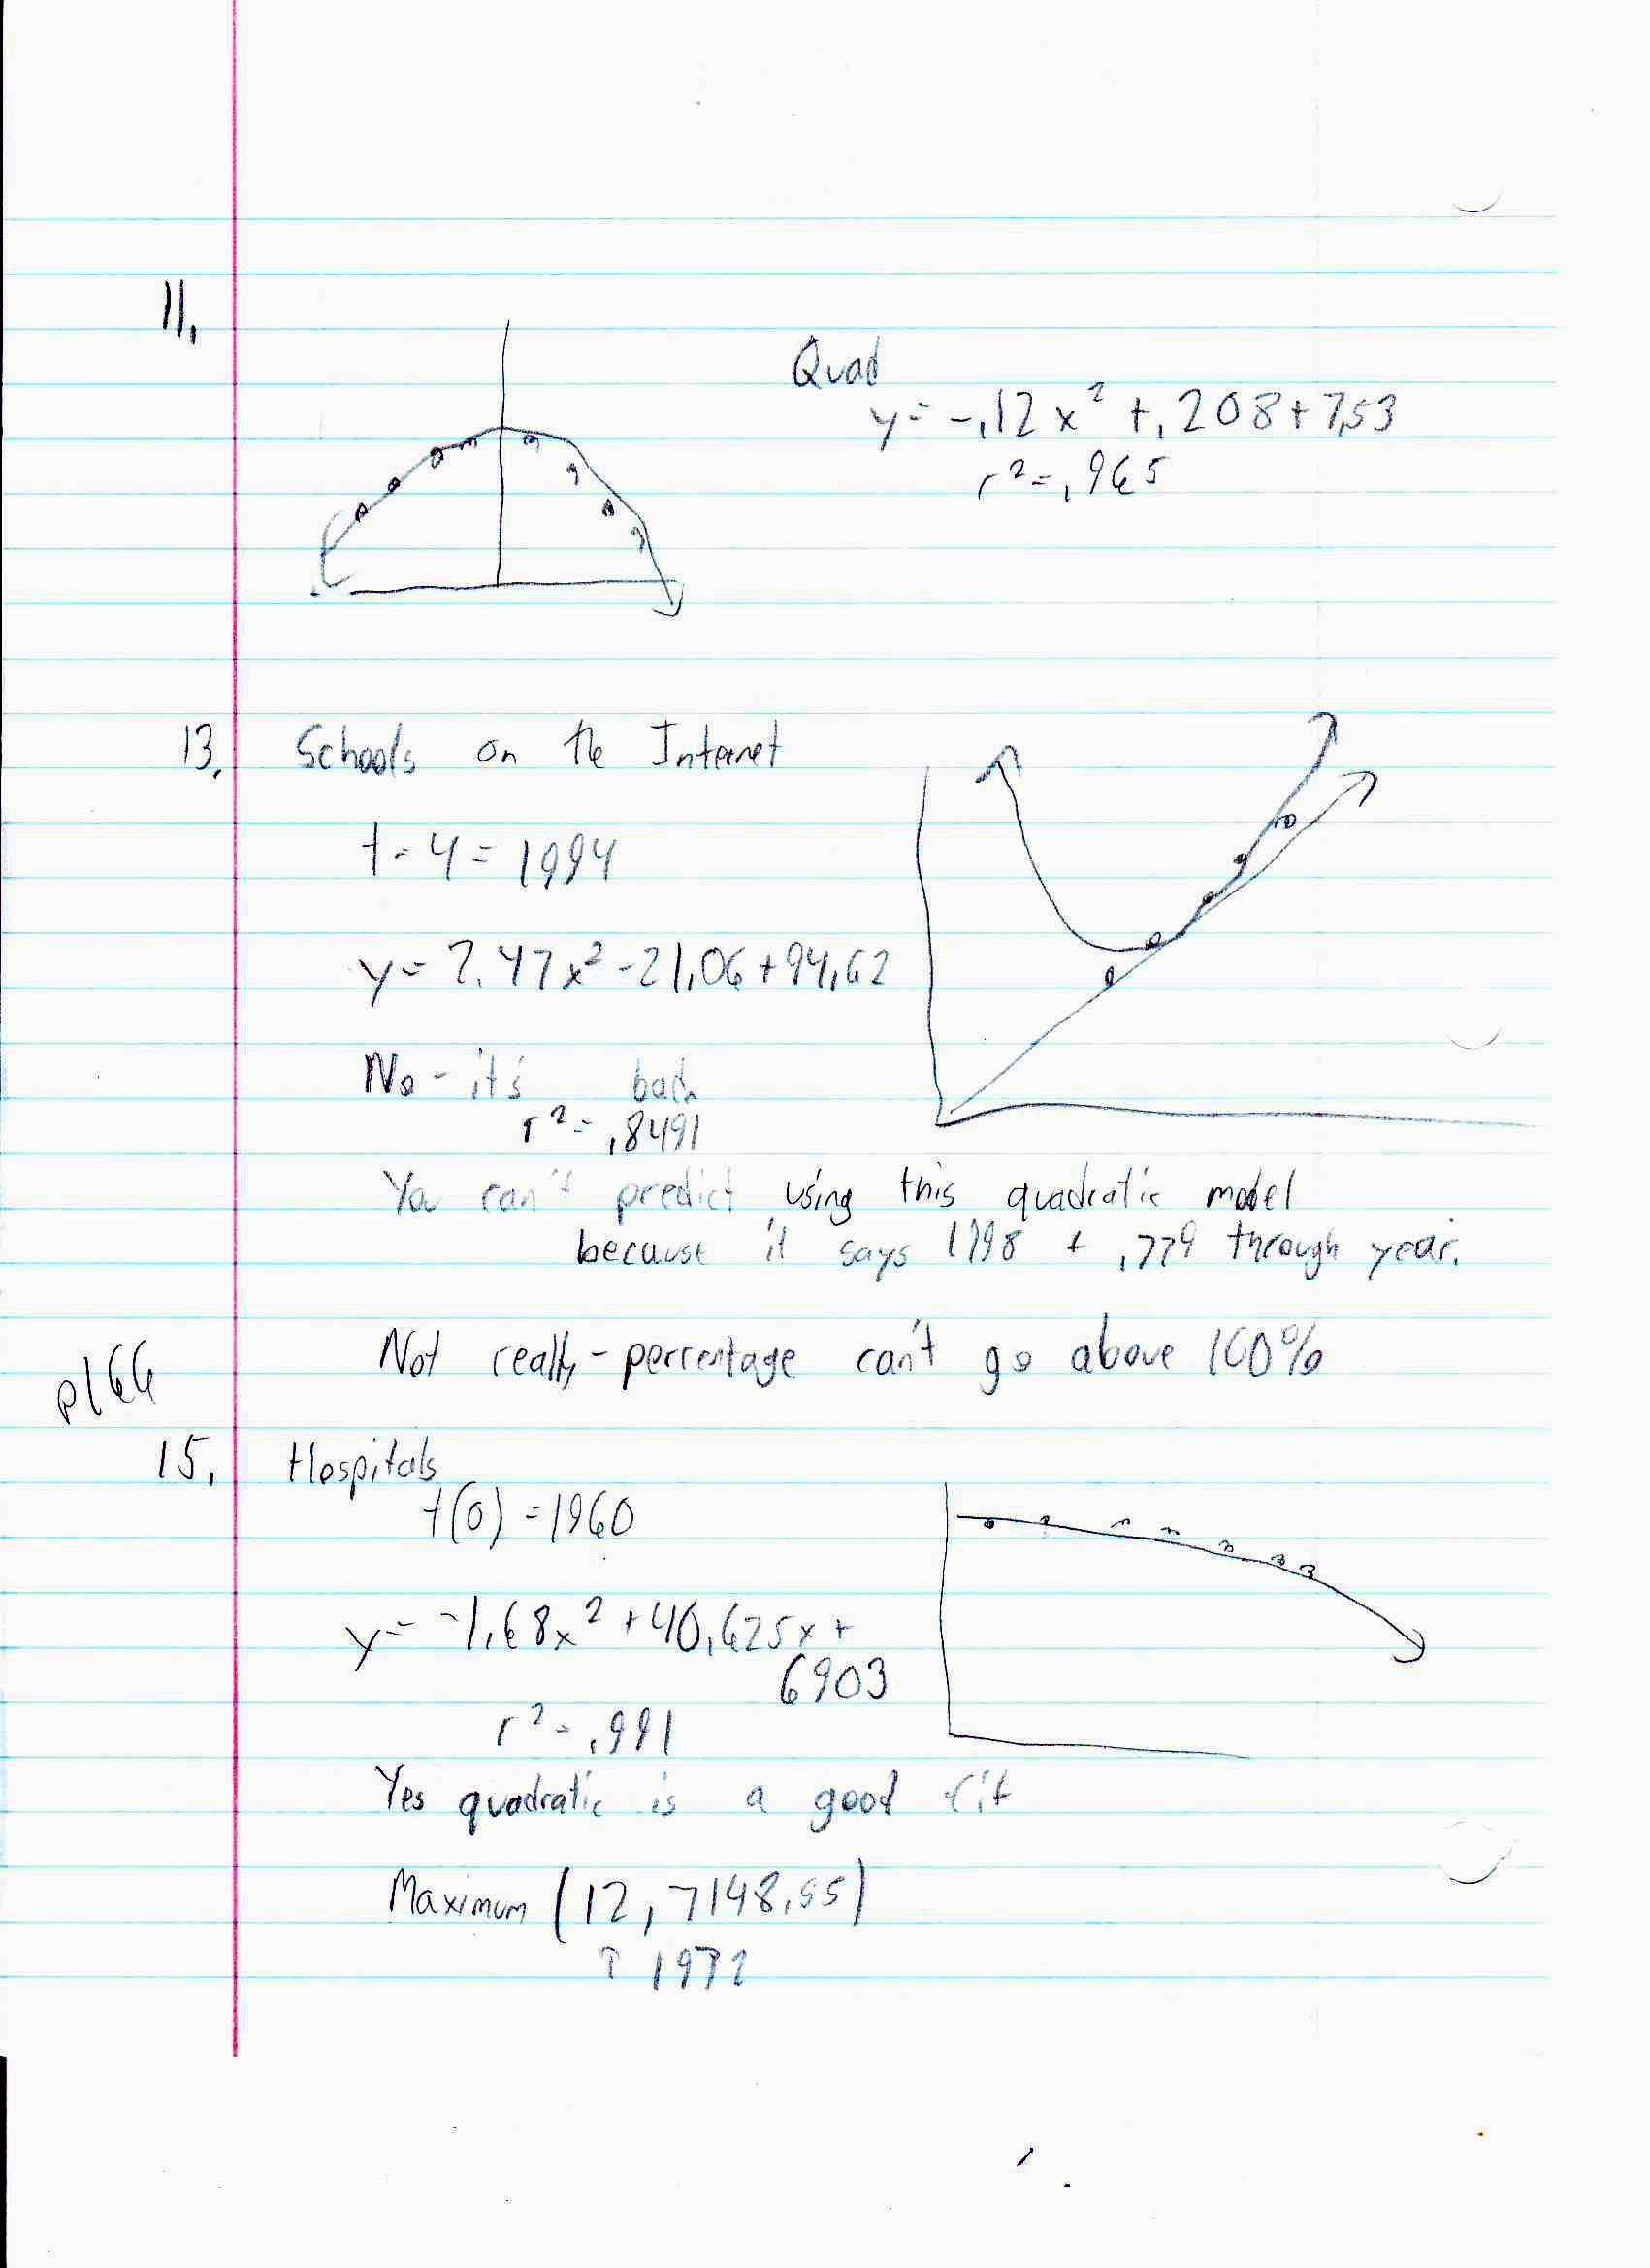 11.
Quad
y = -.12x² + .208 + 7.53
r² = .965
13. Schools on the Internet
t = 4 = 1994
y = 2.47x² - 21.06 + 94.62
No - it's bad.
r² = .8491
You can't predict using this quadratic model
because it says 1998 + .779 through year.
Not really - percentage can't go above 100%
p166
15. Hospitals
t(0) = 1960
y = -1.68x² + 40.625x +
6903
r² = .991
Yes quadratic is a good fit
Maximum (12, 7148.55)
↑ 1972